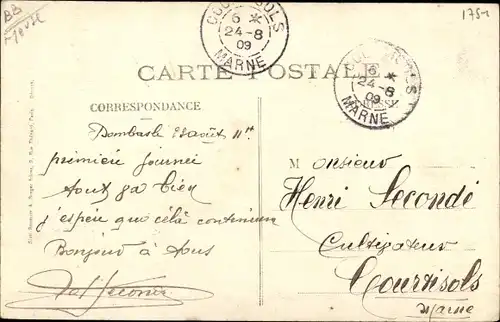 BB
Meuse
1751
COURTISOLS
6 *
24-8
09
MARNE
COURTISOLS
6 *
24-8
09
MARNE
CARTE POSTALE
CORRESPONDANCE
Dombasle 23 août
première journée
tout va bien
j'espère que celà continuera
Bonjour à tous
Monsieur
Henri Secondé
Cultivateur
Courtisols
Marne